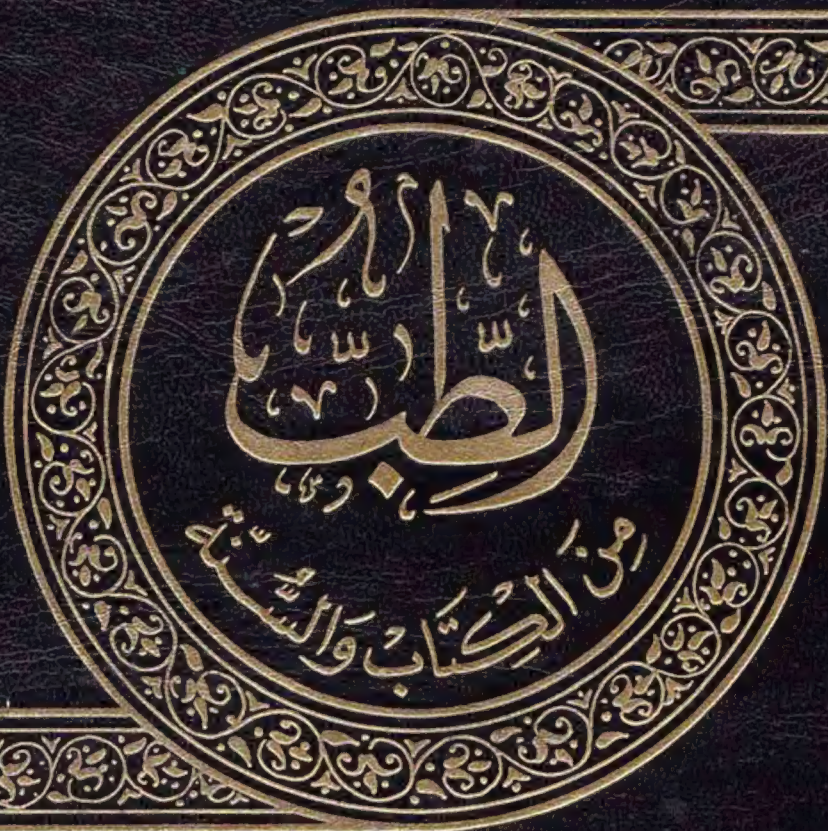 الطِّبّ
مِنَ الكِتَابْ وَالسُّنَّة